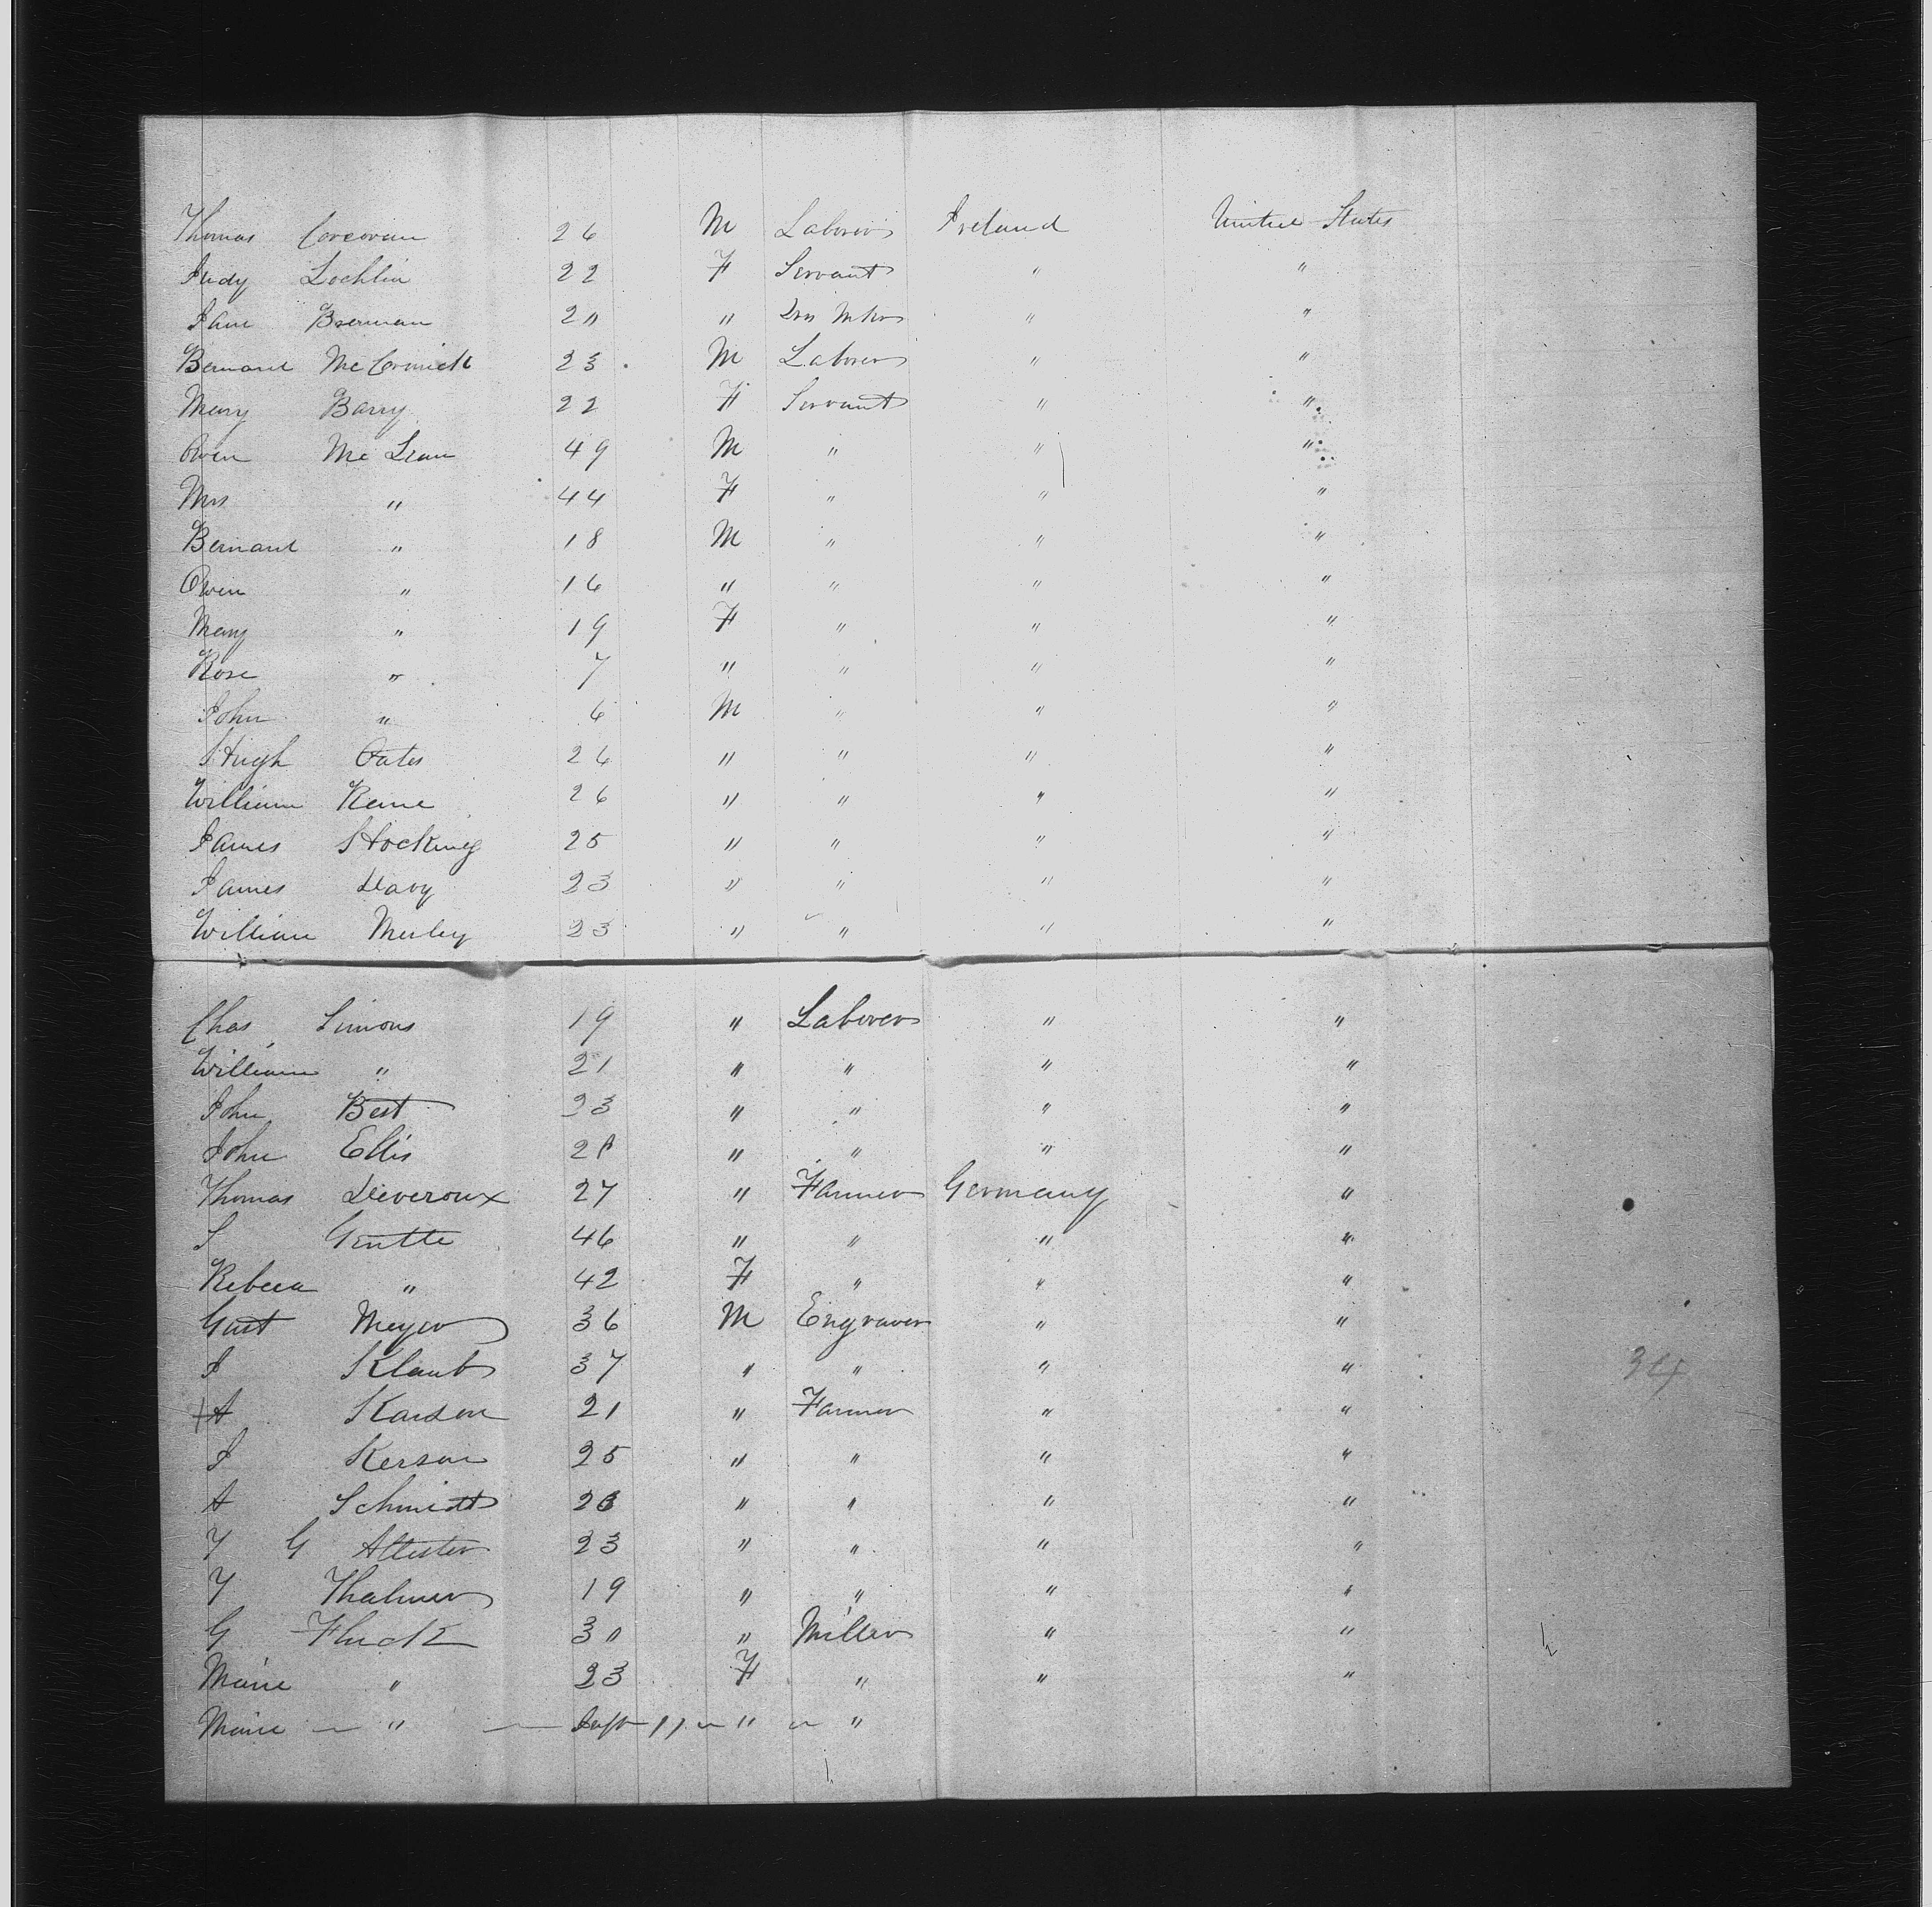 Thomas Corcoran 26 M Laborer Ireland United States
Judy Lochlin 22 F Servant " "
Jane Brennan 20 " Drss Mkr " "
Bernard McCormick 23 M Laborer " "
Mary Barry 22 F Servant " "
Owen Mc Lean 49 M " " "
Mrs " 44 F " " "
Bernard " 18 M " " "
Owen " 16 " " " "
Mary " 19 F " " "
Rose " 7 " " " "
John " 6 M " " "
Hugh Oates 26 " " " "
William Kane 26 " " " "
James Stocking 25 " " " "
James Davy 23 " " " "
William 23 " " " "
Chas Simons 19 " Laborer " "
William " 21 " " " "
John Best 23 " " " "
John Ellis 20 " " " "
Thomas Deveroux 27 " Farmer Germany "
S 46 " " " "
Rebecca " 42 F " " "
Gust Meyer 36 M Engraver " "
J Klaub 37 " " " "
A Karson 21 " Farmer " "
J Kerson 25 " " " "
A Schmidt 23 " " " "
G 23 " " " "
Thalmer 19 " " " "
G Fluck 30 " Miller " "
Marie " 23 F " " "
Marie " Inft 11 " "
34